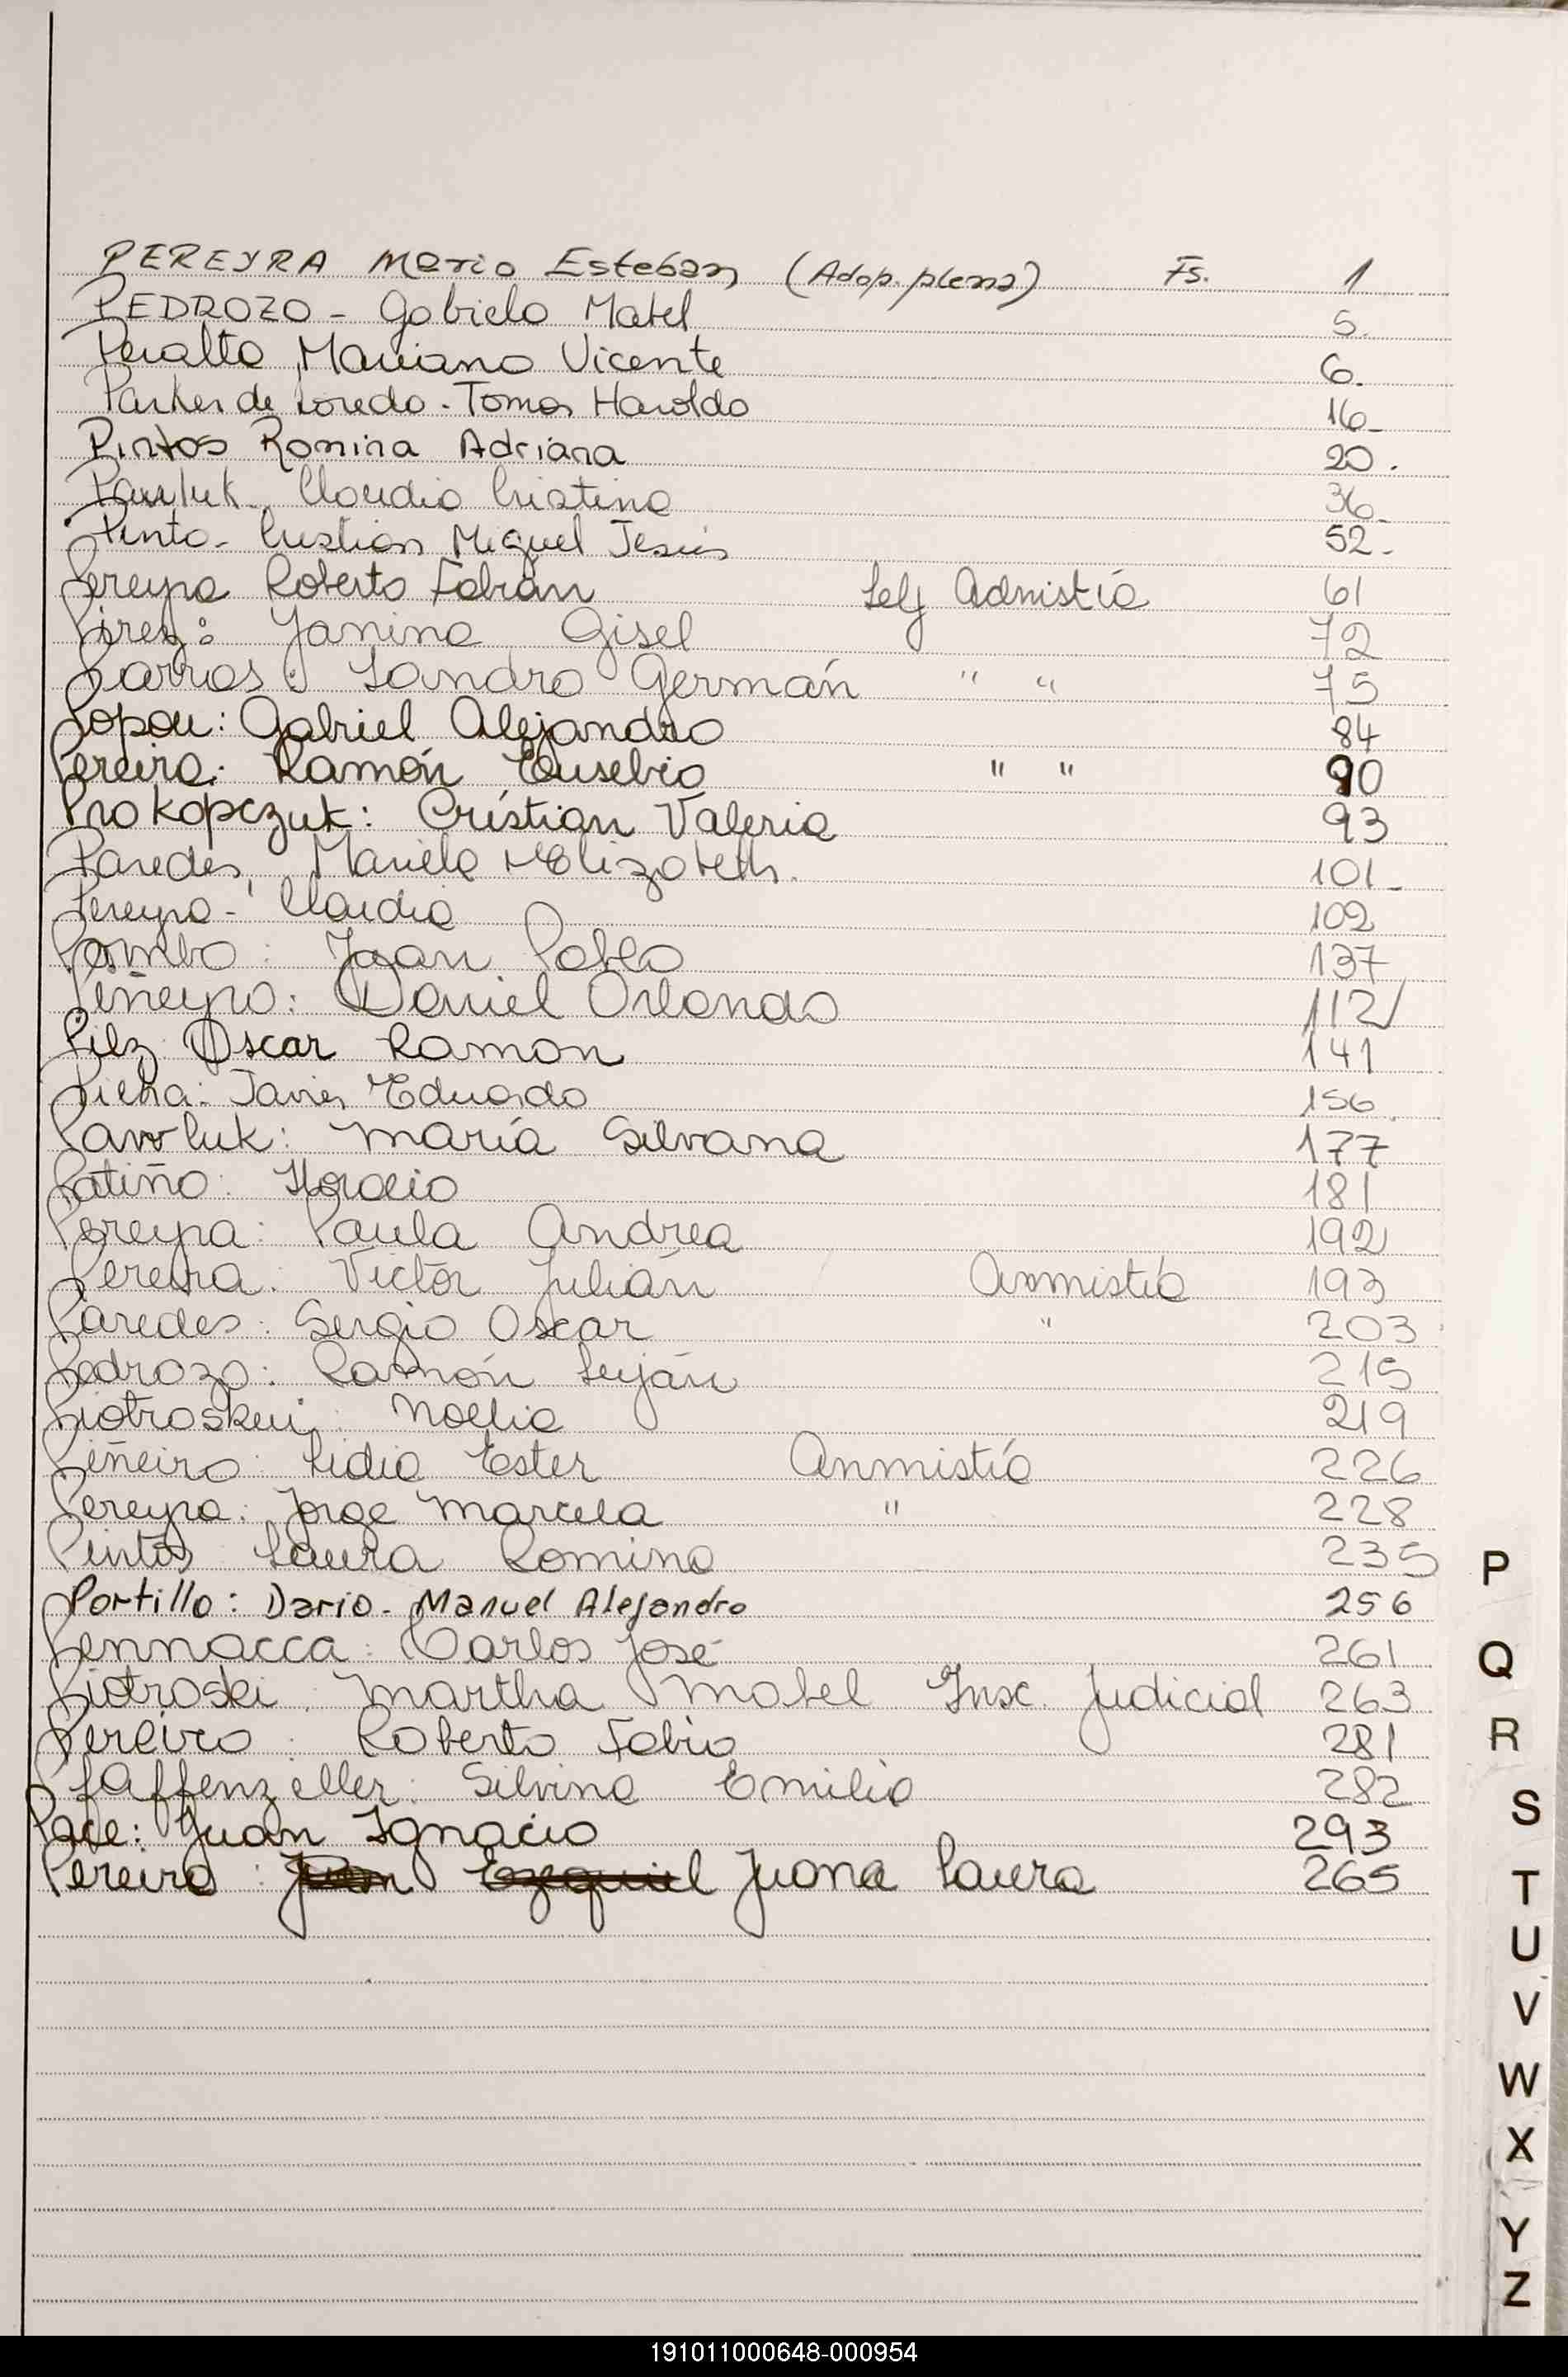 PEREYRA Mario Esteban (Adop. plena) Fs. 1
PEDROZO - Gabriela Mabel 5.
Peralta Mariano Vicente 6.
Parker de Loredo - Tomas Haroldo 16-
Pintos Romina Adriana 20.
Pawluk - Claudia Cristina 36-
Pinto - Cristian Miguel Jesús 52-
Pereyra Roberto Fabián Ley Admistía 61
Pirez: Yanina Gisel 72
Parras: Sandro Germán " " 75
Popou: Gabriel Alejandro 84
Pereira: Ramón Eusebio " " 90
Prokopczuk: Cristian Valeria 93
Paredes, Mariela Elizabeth. 101-
Pereyra - Claudia 102
Pombo: Juan Pablo 137
Piñeyro: Daniel Orlando 112
Pilz Oscar Ramon 141
Javier Eduardo 156
Pawluk: María Silvana 177
Patiño: Horacio 181
Pereyra: Paula Andrea 192
Pereira: Victor Julián Anmistía 193
Paredes: Sergio Oscar " 203
Pedrozo: Ramón Luján 215
Piotroskui: Noelia 219
Piñeiro: Lidia Ester Anmistía 226
Pereyra: Jorge Marcela " 228
Pintos Laura Romina 235
Portillo: Dario - Manuel Alejandro 256
Pennacca: Carlos José 261
Piotroski: Martha Mabel Insc. Judicial 263
Pereira: Roberto Fabio 281
Pfaffenzeller: Silvina Emilia 282
Pace: Juan Ignacio 293
Pereira: Juan Ezequiel Juana Laura 265
P
Q
R
S
T
U
V
W
X
Y
Z
191011000648-000954